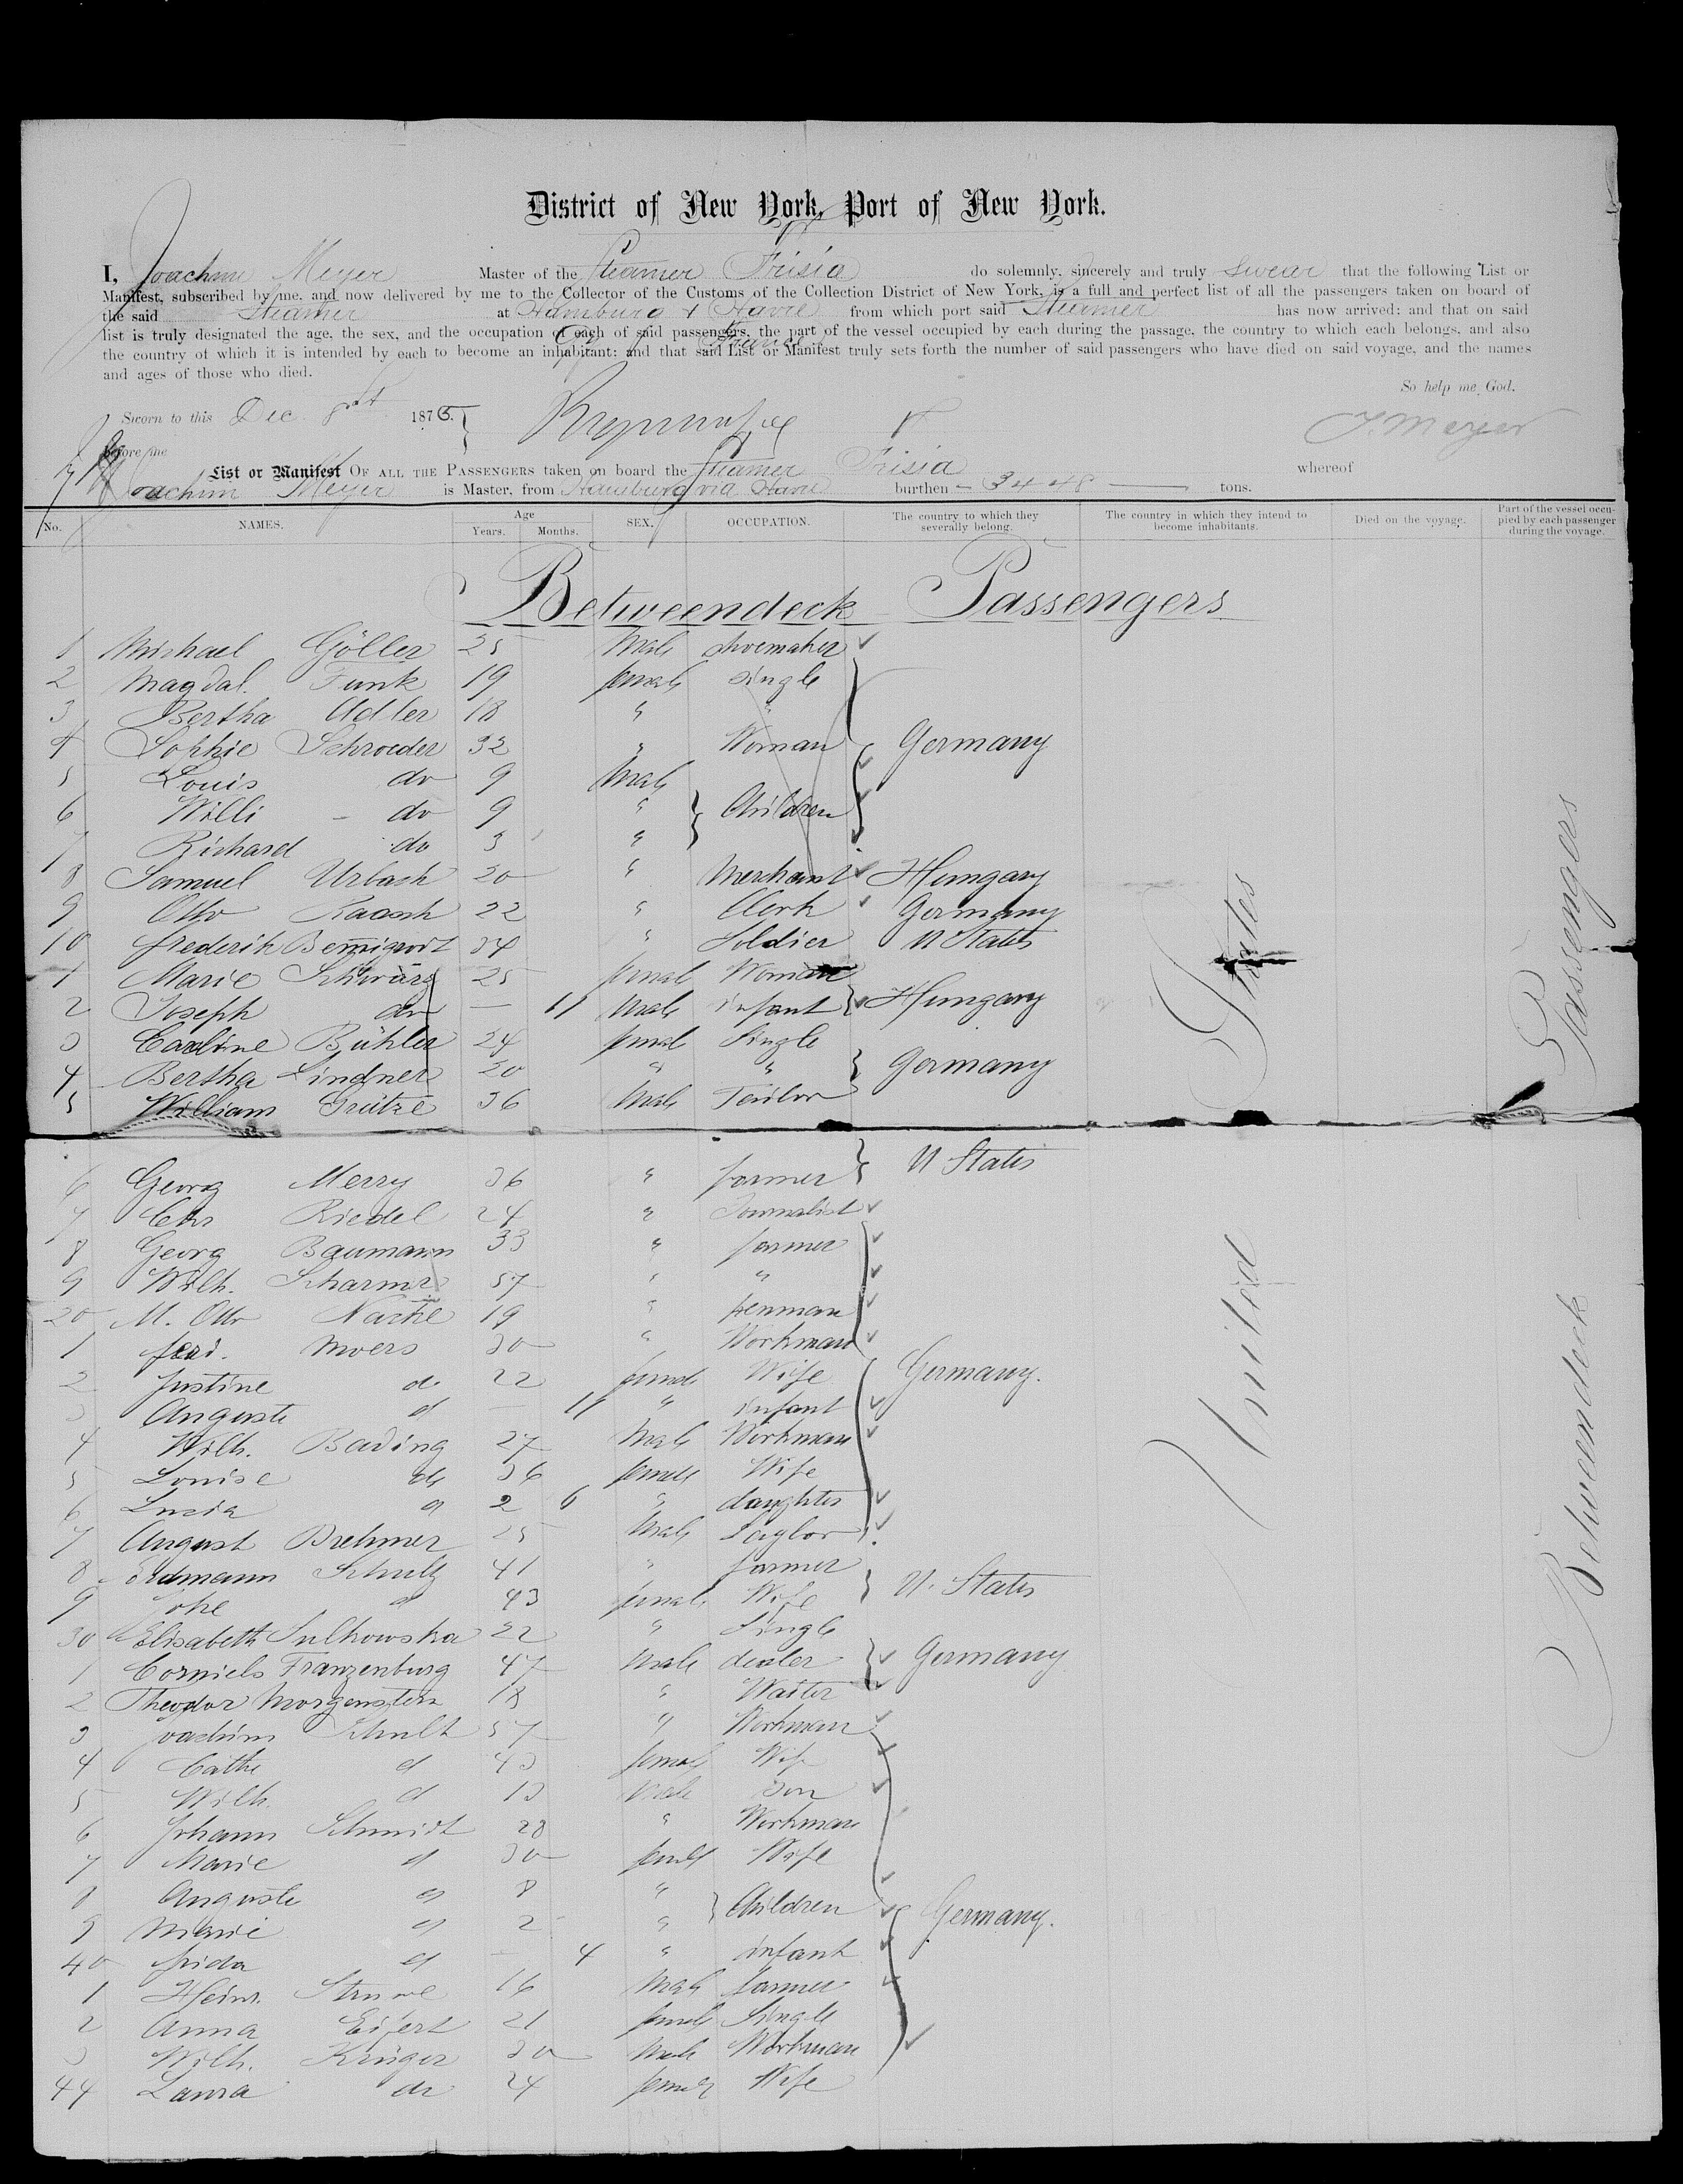 District of New York, Port of New York.
I, Joachim Meyer Master of the Steamer Frisia do solemnly, sincerely and truly swear that the following List or
Manifest, subscribed by me, and now delivered by me to the Collector of the Customs of the Collection District of New York, is a full and perfect list of all the passengers taken on board of
the said Steamer at Hamburg & Havre from which port said Steamer has now arrived: and that on said
list is truly designated the age, the sex, and the occupation of each of said passengers, the part of the vessel occupied by each during the passage, the country to which each belongs, and also
the country of which it is intended by each to become an inhabitant: and that said List or Manifest truly sets forth the number of said passengers who have died on said voyage, and the names
and ages of those who died.
So help me God.
Sworn to this Dec. 8 1875. J. Meyer
Before me
List or Manifest OF ALL THE PASSENGERS taken on board the Steamer Frisia whereof
Joachim Meyer is Master, from Hamburg via Havre burthen - 3448 - tons.
No. NAMES. Age Years. Months. SEX. OCCUPATION. The country to which they severally belong. The country in which they intend to become inhabitants. Died on the voyage. Part of the vessel occupied by each passenger during the voyage.
Betweendeck Passengers
1 Michael Göller 25 Male shoemaker
2 Magdal. Funk 19 female single
3 Bertha Adler 18 " "
4 Sophie Schroeder 32 " Woman Germany
5 Louis do 9 Male
6 Willi - do 9 " Children
7 Richard do 3 "
8 Samuel Urbach 20 " Merchant Hungary
9 Otto Raasch 22 " Clerk Germany
10 Frederik 34 " Soldier U States
1 Marie Schwarz 25 female Woman
2 Joseph do — 11 Male infant Hungary
3 Caroline Bühler 24 femal Single
4 Bertha Lindner 20 " " Germany
5 William Grützé 36 Male Tailor
6 Georg Merry 36 " farmer U States
7 Chr Riedel 24 " Journalist
8 Georg Baumann 33 " farmer
9 Wilh. 57 " "
20 M. Otto 19 " penman
1 Ferd. Moers 30 " Workman
2 Justine do 22 female Wife Germany.
3 Auguste d — 11 " infant
4 Wilh. Bading 27 Male Workman
5 Louise do 36 female Wife
6 Luzia d 2 6 " daughter
7 August Brehmer 25 Male Taylor
8 Erdmann Schultz 41 " farmer
9 d 43 female Wife U. States
30 Elisabeth Sulkowska 22 " Single
1 Corniels Franzenburg 47 Male dealer Germany
2 Theodor Morgenstern 18 " Waiter
3 Joachim Schult 57 " Workman
4 Cathe d 43 female Wife
5 Wilh. d 13 Male Son
6 Johann Schmidt 28 " Workman
7 Marie d 30 female Wife
8 Auguste d 8 "
9 Marie d 2 " Children Germany.
40 Frida d — 4 " infant
1 Heinr. Struve 16 Male farmer
2 Anna Eifert 21 female Single
3 Wilh. Krüger 30 Male Workman
44 Laura do 24 female Wife
United States
Betweendeck Passengers